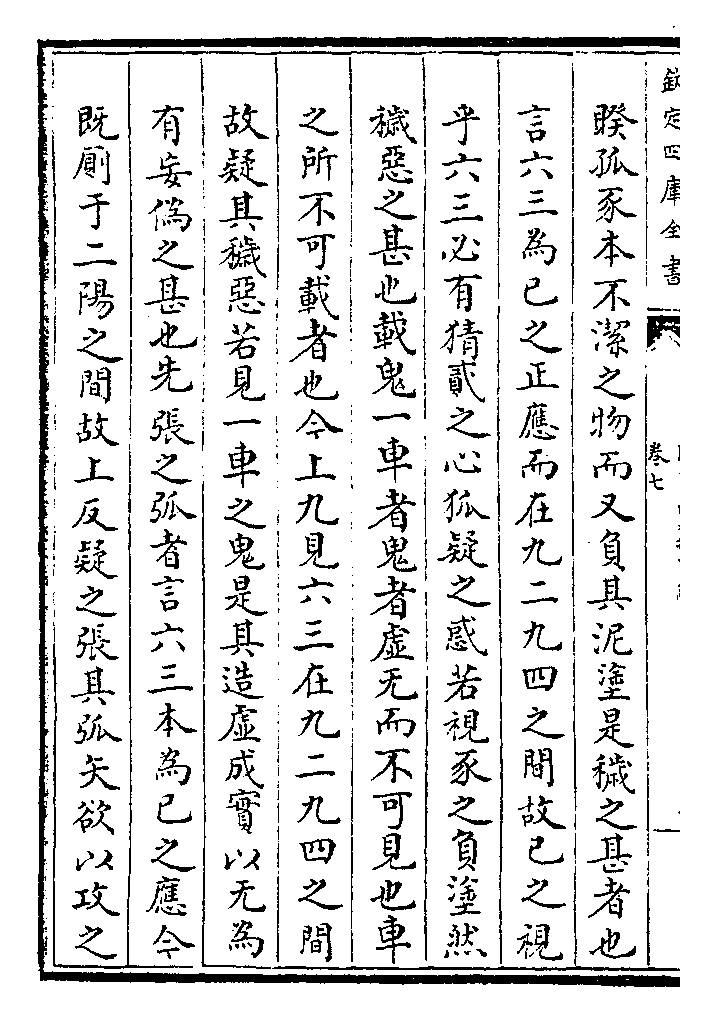 欽定四庫全書
卷七
睽孤豕本不潔之物而又負其泥塗是穢之甚者也
言六三為己之正應而在九二九四之間故己之視
乎六三必有猜貳之心狐疑之惑若視豕之負塗然
穢惡之甚也載鬼一車者鬼者虛无而不可見也車
之所不可載者也今上九見六三在九二九四之間
故疑其穢惡若見一車之鬼是其造虛成實以无為
有妄偽之甚也先張之弧者言六三本為己之應今
既厠于二陽之間故上反疑之張其弧矢欲以攻之